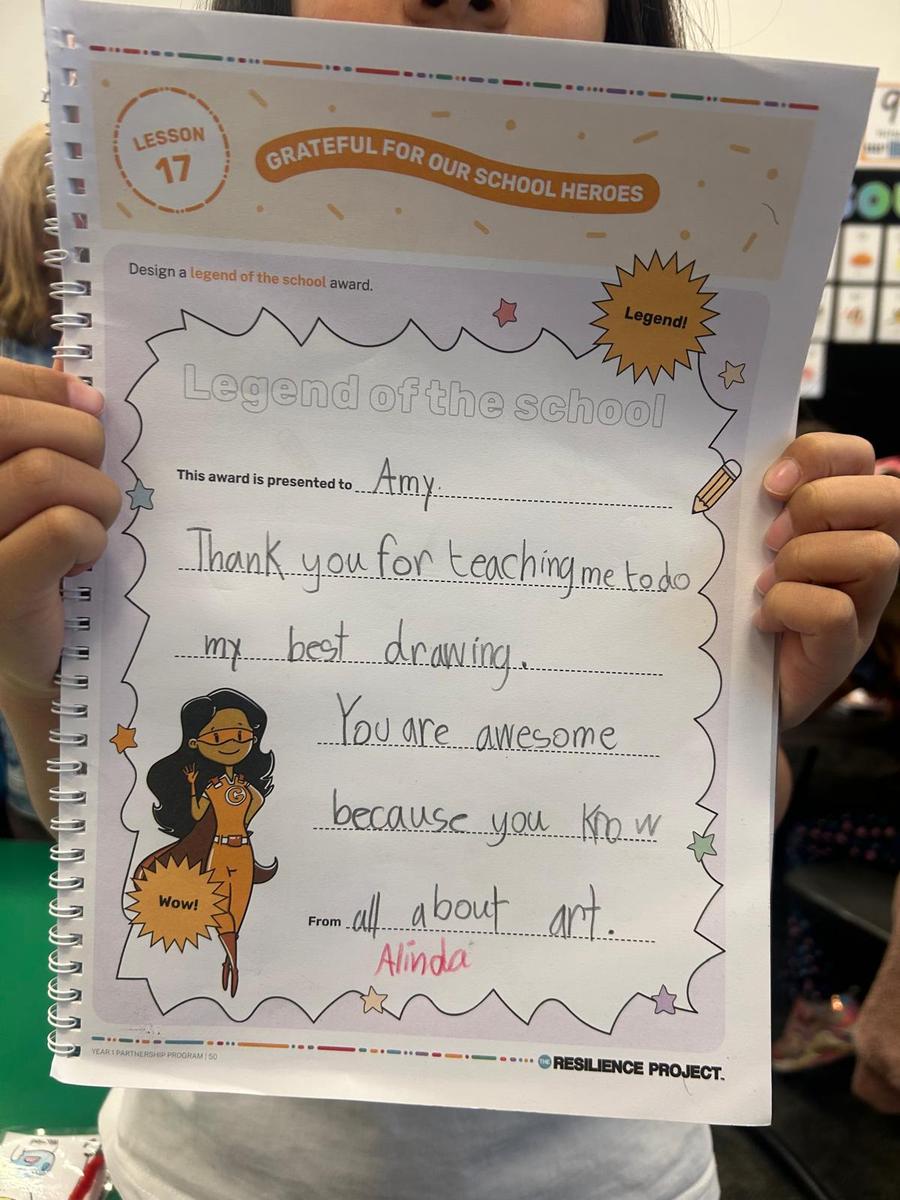 LESSON
17
GRATEFUL FOR OUR SCHOOL HEROES
Design a legend of the school award.
Legend!
Legend of the school
This award is presented to Amy.
Thank you for teaching me to do
my best drawing.
You are awesome
because you know
Wow!
From all about art.
Alinda
YEAR 1 PARTNERSHIP PROGRAM | 50
THE RESILIENCE PROJECT.